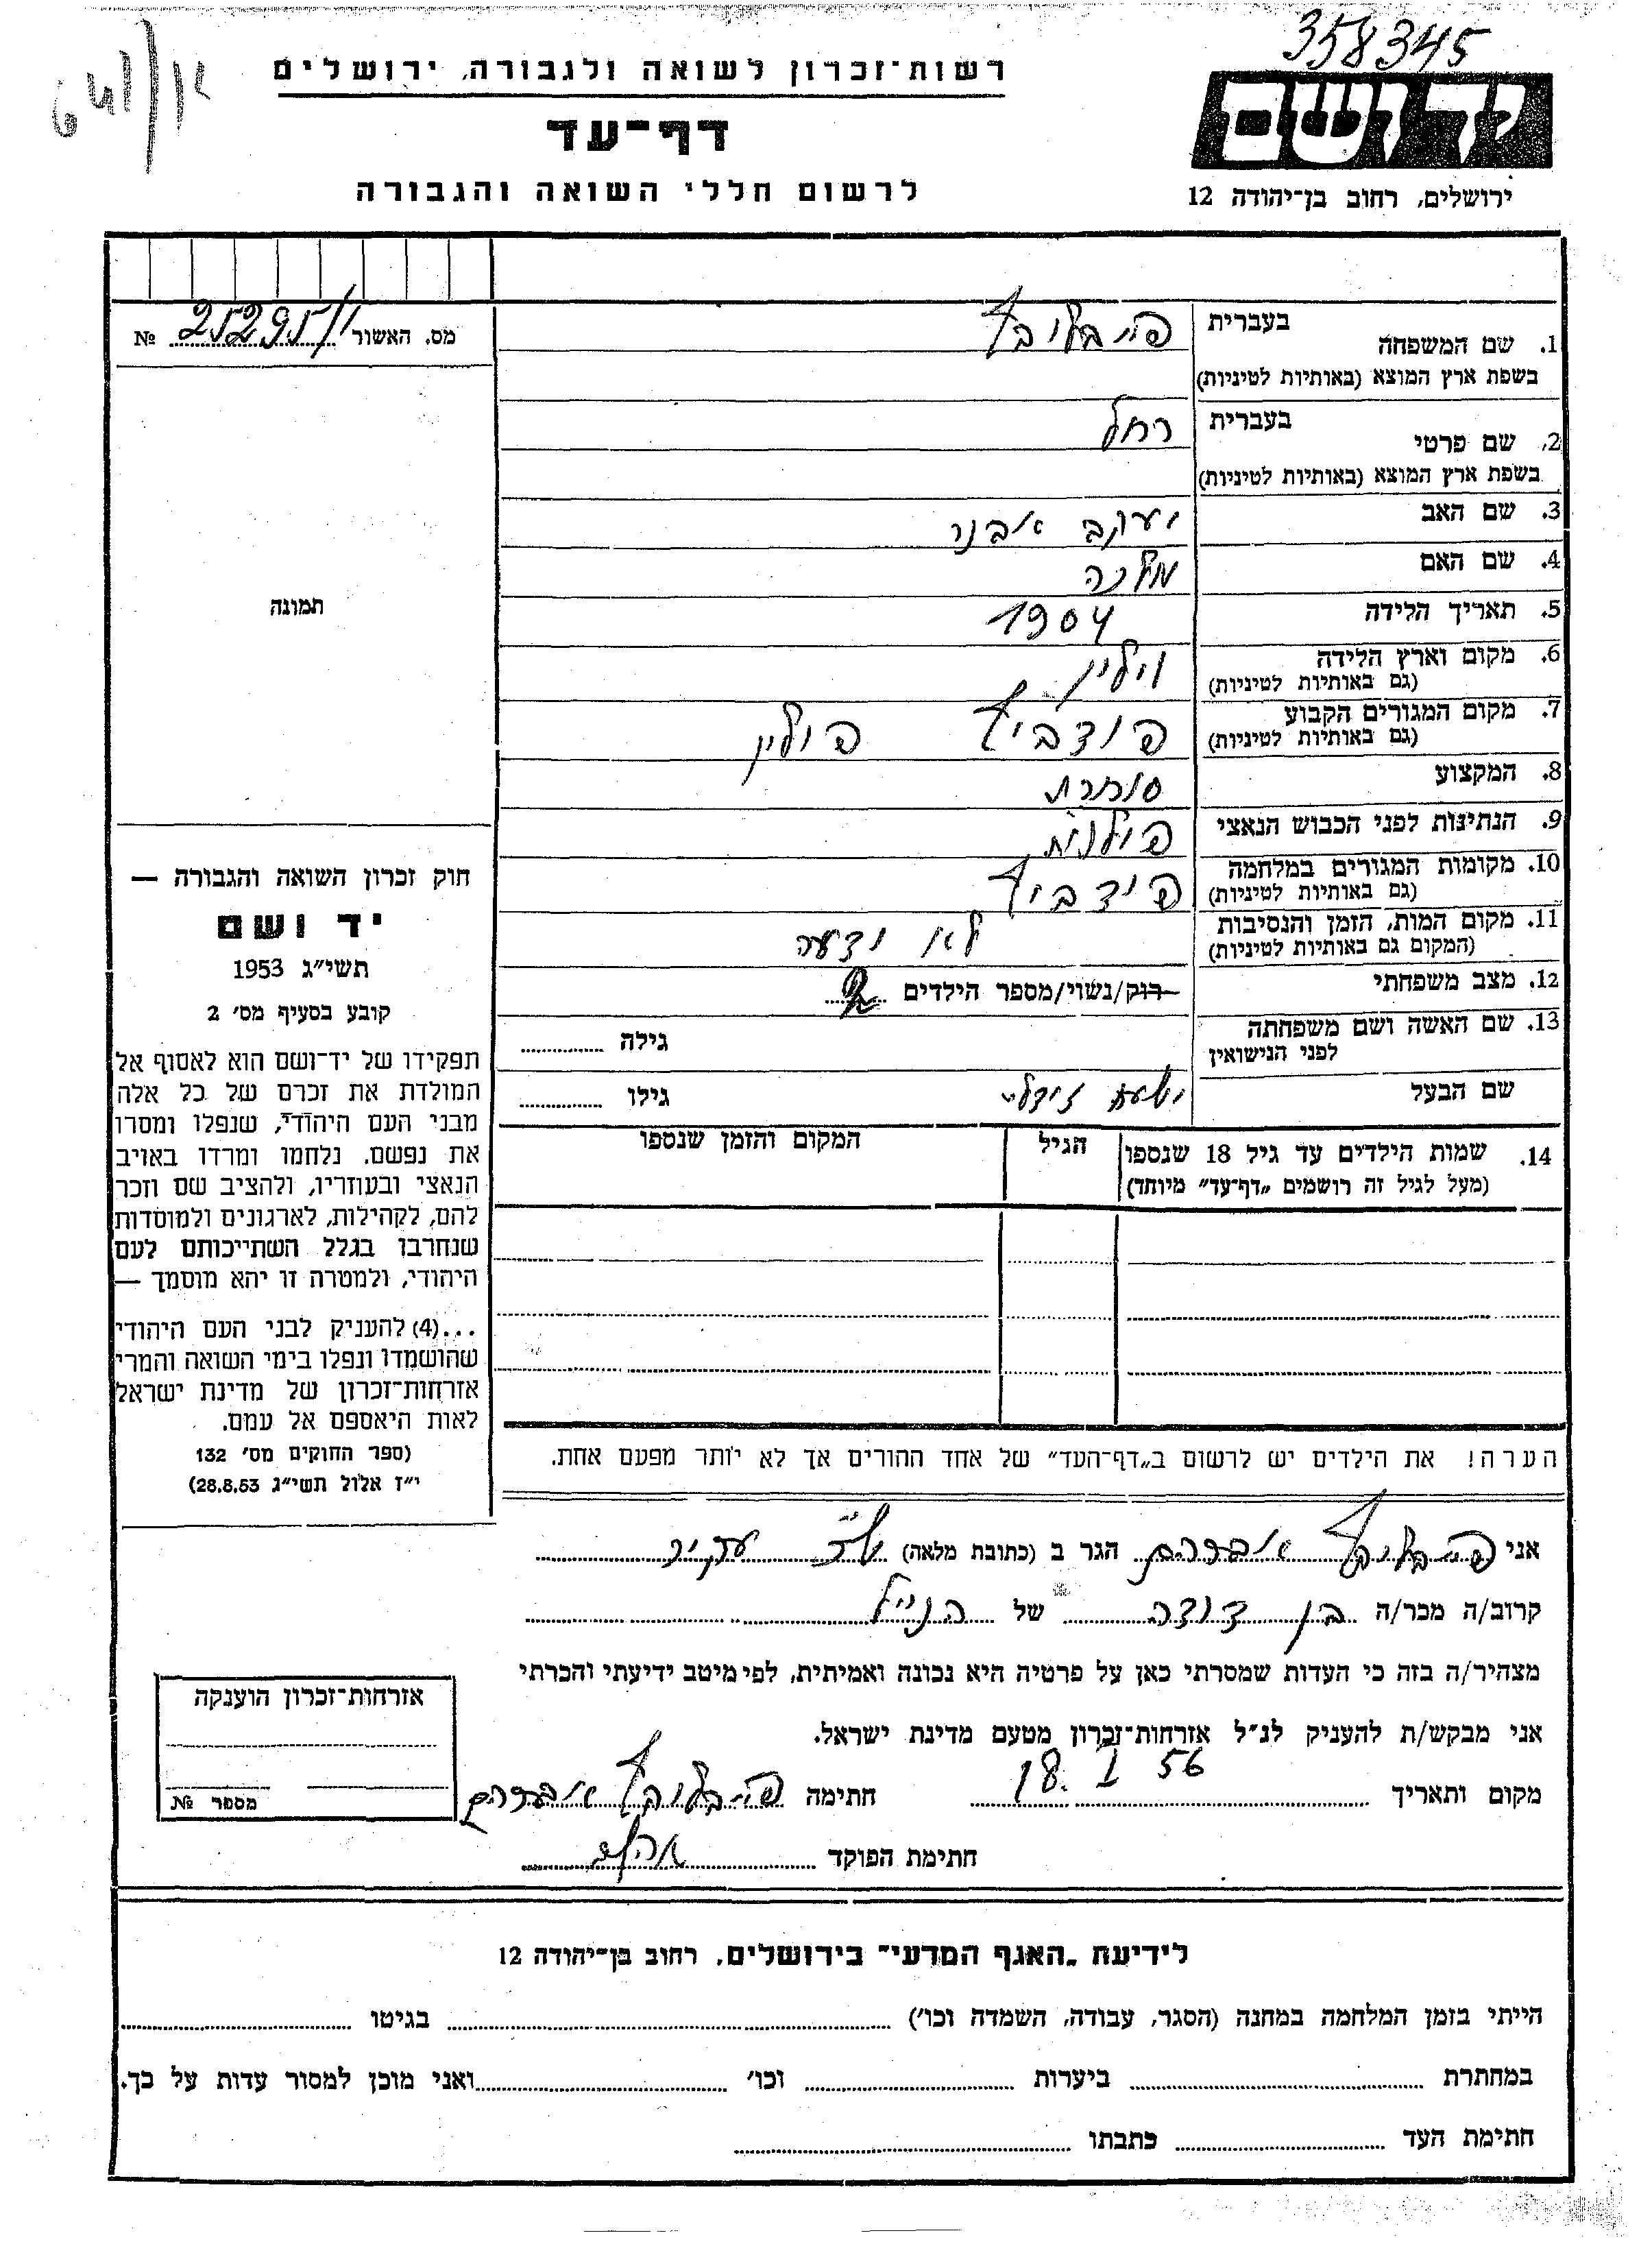 358345
יד ושם
ירושלים, רחוב בן־יהודה 12
רשות־זכרון לשואה ולגבורה, ירושלים
דף־עד
לרשום חללי השואה והגבורה
מס. האשור 25295/1 №
1. שם המשפחה
בעברית
בשפת ארץ המוצא (באותיות לטיניות)
2. שם פרטי
בעברית רחל
בשפת ארץ המוצא (באותיות לטיניות)
3. שם האב יעקב אבנר
4. שם האם מלכה
5. תאריך הלידה 1904
6. מקום וארץ הלידה
(גם באותיות לטיניות)
7. מקום המגורים הקבוע פודביץ פולין
(גם באותיות לטיניות)
8. המקצוע סוחרת
9. הנתינות לפני הכבוש הנאצי פולנית
10. מקומות המגורים במלחמה פודביץ
(גם באותיות לטיניות)
11. מקום המות, הזמן והנסיבות לא ידעה
(המקום גם באותיות לטיניות)
12. מצב משפחתי רוק/נשוי/מספר הילדים 2
13. שם האשה ושם משפחתה
לפני הנישואין
גילה
שם הבעל
גילו
14. שמות הילדים עד גיל 18 שנספו
(מעל לגיל זה רושמים „דף־עד” מיוחד)
הגיל
המקום והזמן שנספו
הערה! את הילדים יש לרשום ב„דף־העד” של אחד ההורים אך לא יותר מפעם אחת.
תמונה
חוק זכרון השואה והגבורה —
יד ושם
תשי״ג 1953
קובע בסעיף מס׳ 2
תפקידו של יד־ושם הוא לאסוף אל
המולדת את זכרם של כל אלה
מבני העם היהודי, שנפלו ומסרו
את נפשם. נלחמו ומרדו באויב
הנאצי ובעוזריו, ולהציב שם וזכר
להם, לקהילות, לארגונים ולמוסדות
שנחרבו בגלל השתייכותם לעם
היהודי, ולמטרה זו יהא מוסמך —
...(4) להעניק לבני העם היהודי
שהושמדו ונפלו בימי השואה והמרי
אזרחות־זכרון של מדינת ישראל
לאות היאספם אל עמם.
(ספר החוקים מס׳ 132
י״ז אלול תשי״ג 28.8.53)
אני אברהם הגר ב (כתובת מלאה) עקיר
קרוב/ה מכר/ה בן דודה של הנ״ל
מצהיר/ה בזה כי העדות שמסרתי כאן על פרטיה היא נכונה ואמיתית, לפי מיטב ידיעתי והכרתי
אני מבקש/ת להעניק לנ״ל אזרחות־זכרון מטעם מדינת ישראל.
מקום ותאריך 18. I 56 חתימה אברהם
חתימת הפוקד
אזרחות־זכרון הוענקה
מספר №
לידיעת „האגף המדעי” בירושלים, רחוב בן־יהודה 12
הייתי בזמן המלחמה במחנה (הסגר, עבודה, השמדה וכו׳) בגיטו
במחתרת ביערות וכו׳ ואני מוכן למסור עדות על כך.
חתימת העד כתבתו